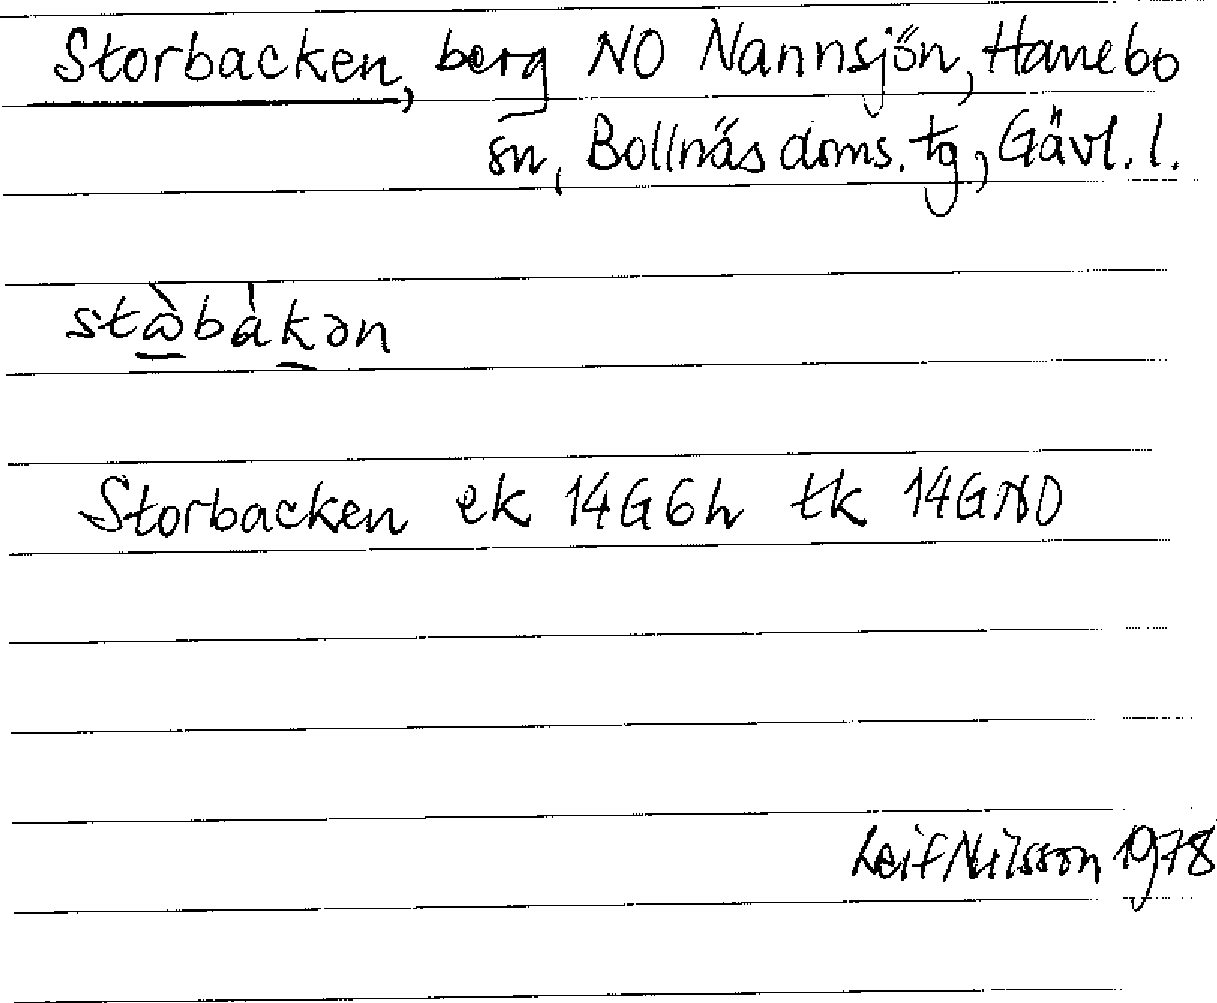 Storbacken, berg NO Nannsjön, Hanebo
sn, Bollnäs doms. tg, Gävl. l.
Storbacken ek 14G6h tk 14GNO
Leif Nilsson 1978